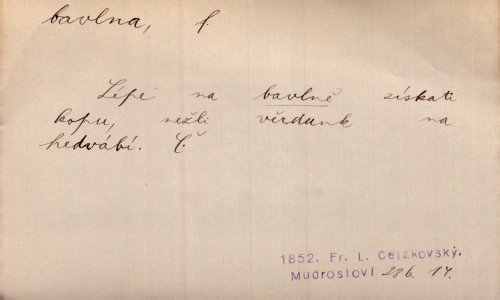 bavlna, f.
Lépe na bavlně získati
kopu, nežli věrdunk na
hedvábí. Č.
1852. Fr. L. Čelakovský,
Mudrosloví 286. 14.